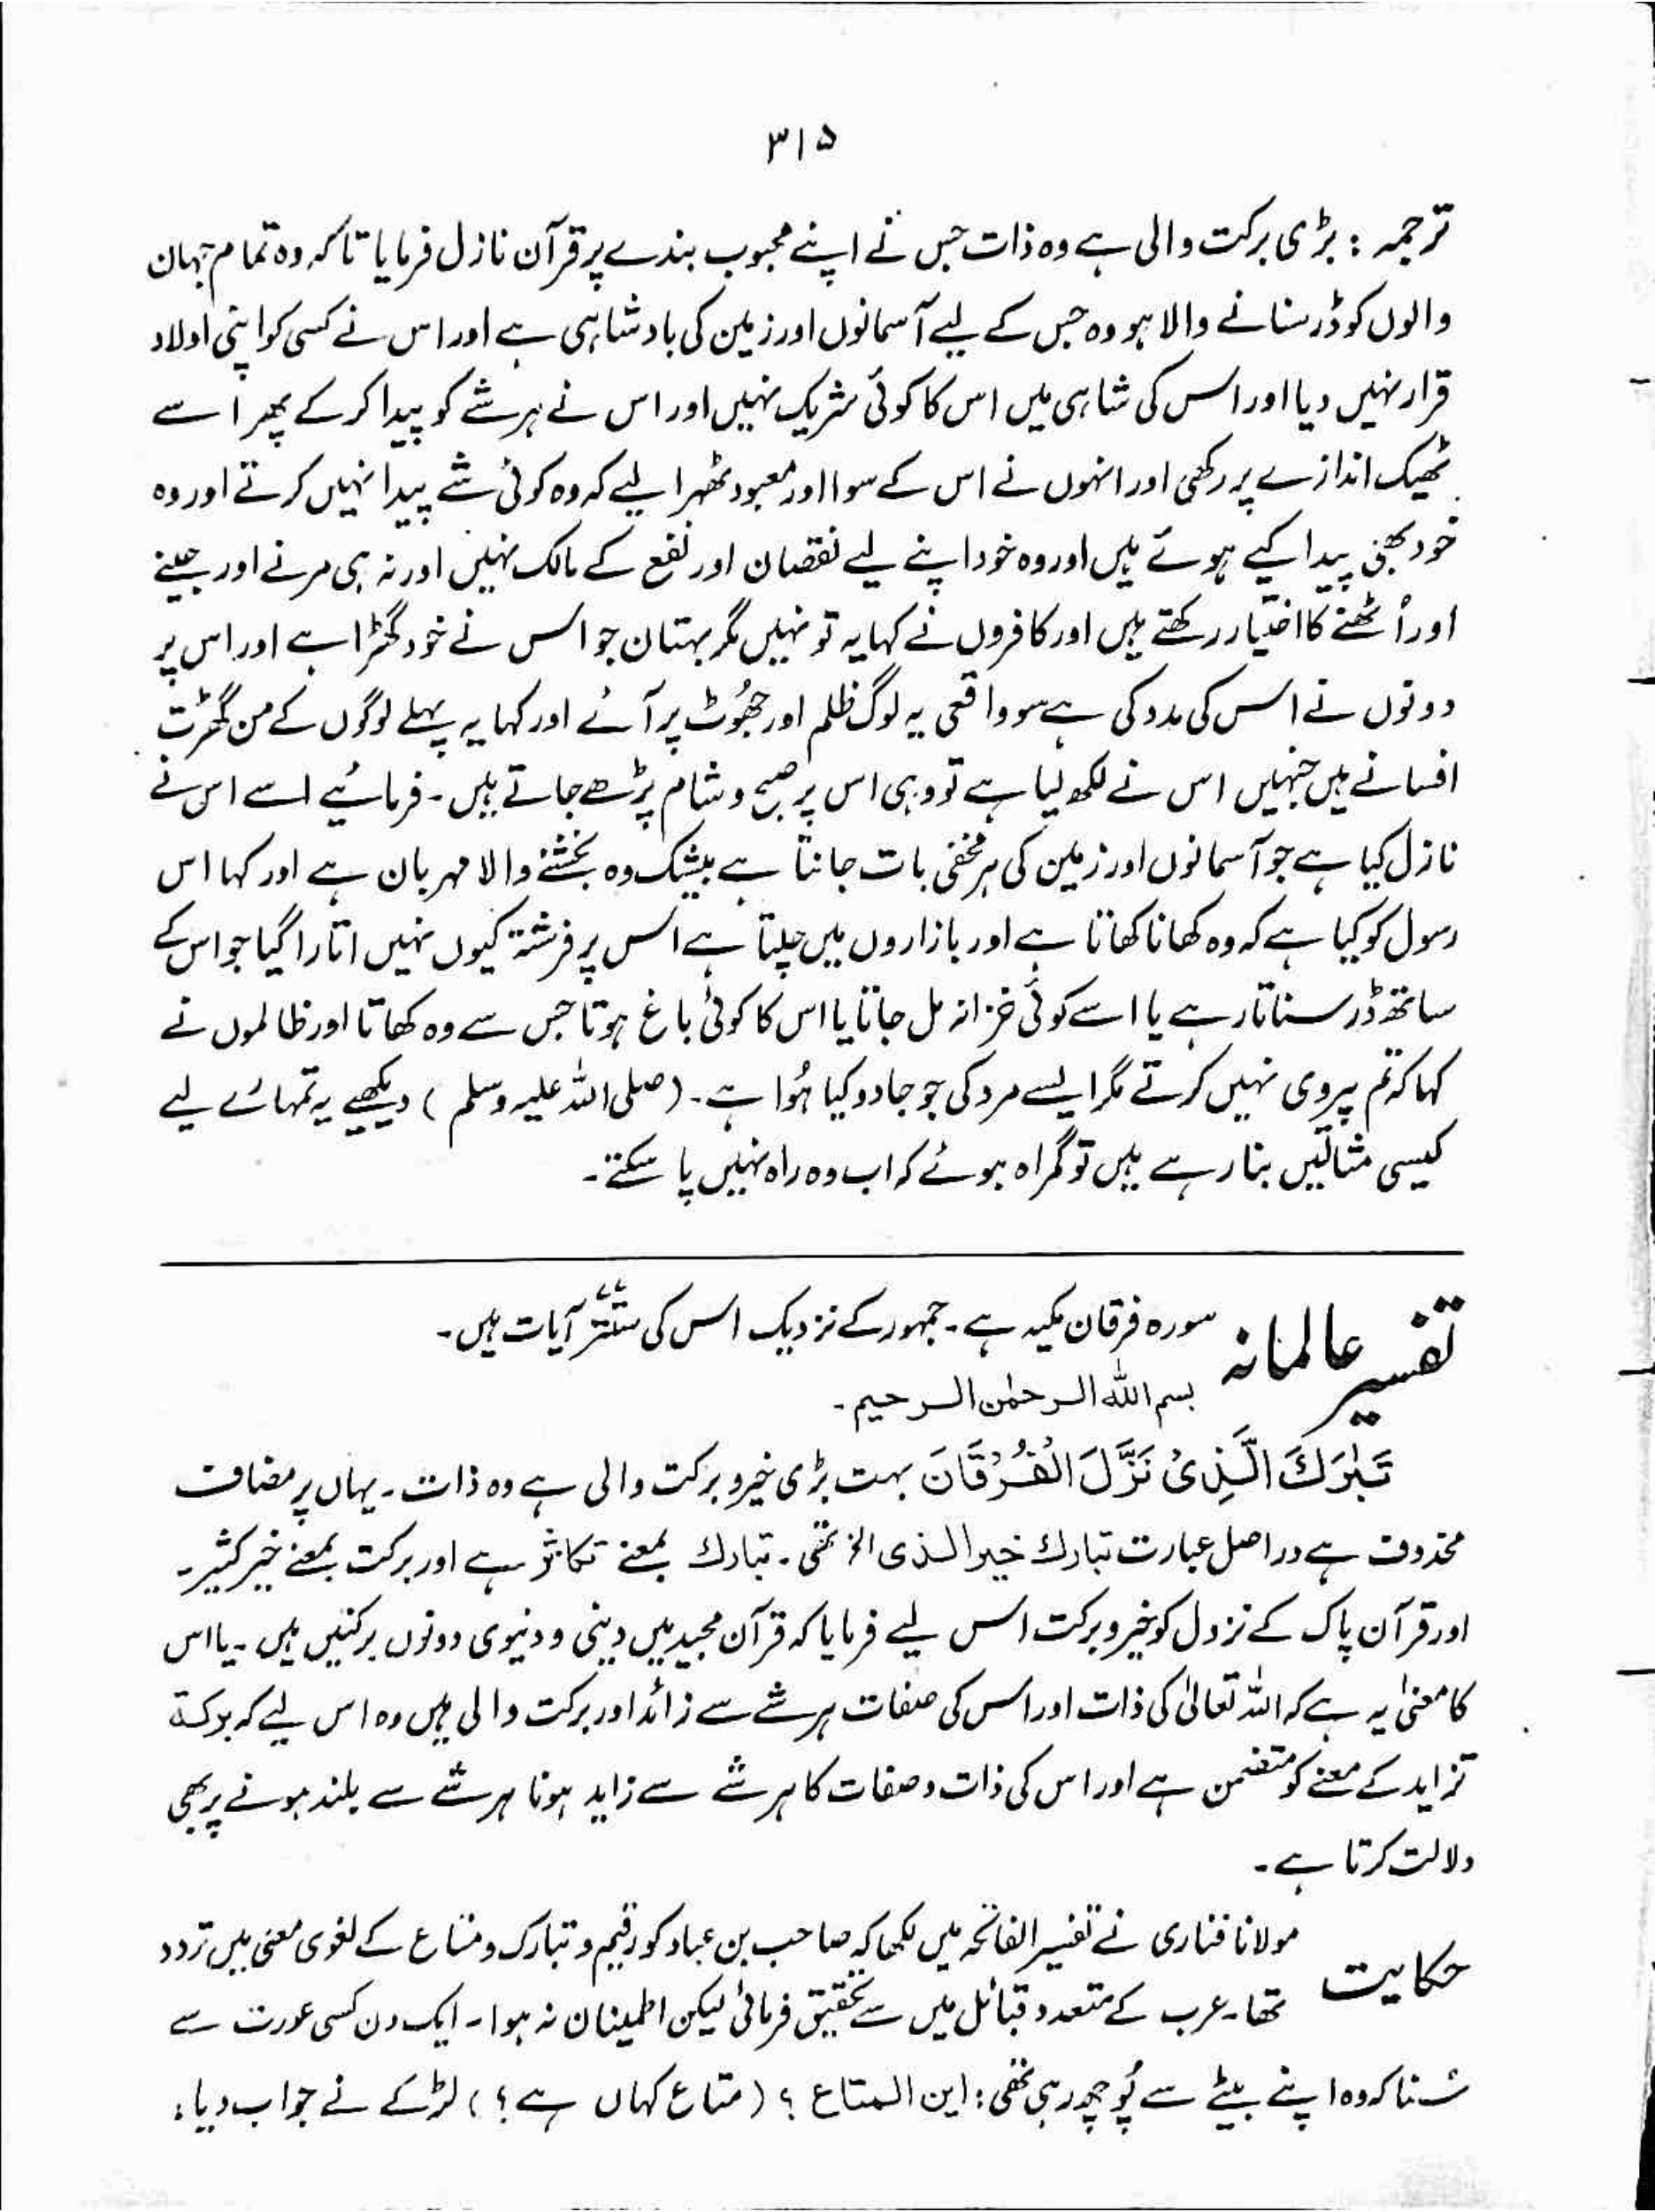 ۳۱۵
ترجمہ : بڑی برکت والی ہے وہ ذات جس نے اپنے محبوب بندے پر قرآن نازل فرمایا تاکہ وہ تمام جہان
والوں کو ڈر سنانے والا ہو وہ جس کے لیے آسمانوں اور زمین کی بادشاہی ہے اور اس نے کسی کو اپنی اولاد
قرار نہیں دیا اور اس کی شاہی میں اس کا کوئی شریک نہیں اور اس نے ہر شے کو پیدا کر کے پھر اسے
ٹھیک اندازے پر رکھی اور انہوں نے اس کے سوا اور معبود ٹھہرا لیے کہ وہ کوئی شے پیدا نہیں کرتے اور وہ
خود بھی پیدا کیے ہوئے ہیں اور وہ خود اپنے لیے نقصان اور نفع کے مالک نہیں اور نہ ہی مرنے اور جینے
اور اُٹھنے کا اختیار رکھتے ہیں اور کافروں نے کہا یہ تو نہیں مگر بہتان جو اس نے خود گھڑا ہے اور اس پر
دونوں نے اس کی مدد کی ہے سو واقعی یہ لوگ ظلم اور جھُوٹ پر آئے اور کہا یہ پہلے لوگوں کے من گھڑت
افسانے ہیں جنہیں اس نے لکھ لیا ہے تو وہی اس پر صبح و شام پڑھے جاتے ہیں۔ فرمائیے اسے اس نے
نازل کیا ہے جو آسمانوں اور زمین کی ہر مخفی بات جانتا ہے بیشک وہ بخشنے والا مہربان ہے اور کہا اس
رسول کو کیا ہے کہ وہ کھانا کھاتا ہے اور بازاروں میں چلتا ہے اس پر فرشتہ کیوں نہیں اتارا گیا جو اس کے
ساتھ ڈر سناتا رہے یا اسے کوئی خزانہ مل جاتا یا اس کا کوئی باغ ہوتا جس سے وہ کھاتا اور ظالموں نے
کہا کہ تم پیروی نہیں کرتے مگر ایسے مرد کی جو جادو کیا ہُوا ہے۔ (صلی اللہ علیہ وسلم) دیکھیے یہ تمہارے لیے
کیسی مثالیں بنا رہے ہیں تو گمراہ ہوئے کہ اب وہ راہ نہیں پا سکتے۔
تفسیر عالمانہ سورہ فرقان مکیہ ہے۔ جمہور کے نزدیک اس کی ستتر ۷۷ آیات ہیں۔
بسم اللہ الرحمٰن الرحیم۔
تَبٰرَكَ الَّذِیْ نَزَّلَ الْفُرْقَانَ بہت بڑی خیر و برکت والی ہے وہ ذات۔ یہاں پر مضاف
محذوف ہے دراصل عبارت تبارك خیر الذی الخ تھی۔ تبارك بمعنے تکاثر ہے اور برکت بمعنے خیر کثیر۔
اور قرآن پاک کے نزول کو خیر و برکت اس لیے فرمایا کہ قرآن مجید میں دینی و دنیوی دونوں برکتیں ہیں۔ یا اس
کا معنیٰ یہ ہے کہ اللہ تعالیٰ کی ذات اور اس کی صفات ہر شے سے زائد اور برکت والی ہیں وہ اس لیے کہ بركة
تزاید کے معنے کو متضمن ہے اور اس کی ذات و صفات کا ہر شے سے زاید ہونا ہر شے سے بلند ہونے پر بھی
دلالت کرتا ہے۔
حکایت مولانا فناری نے تفسیر الفاتحہ میں لکھا کہ صاحب بن عباد کو رقیم و تبارک و متاع کے لغوی معنی میں تردد
تھا۔ عرب کے متعدد قبائل میں سے تحقیق فرمائی لیکن اطمینان نہ ہوا۔ ایک دن کسی عورت سے
سُنا کہ وہ اپنے بیٹے سے پُوچھ رہی تھی: این المتاع ؟ (متاع کہاں ہے؟) لڑکے نے جواب دیا: